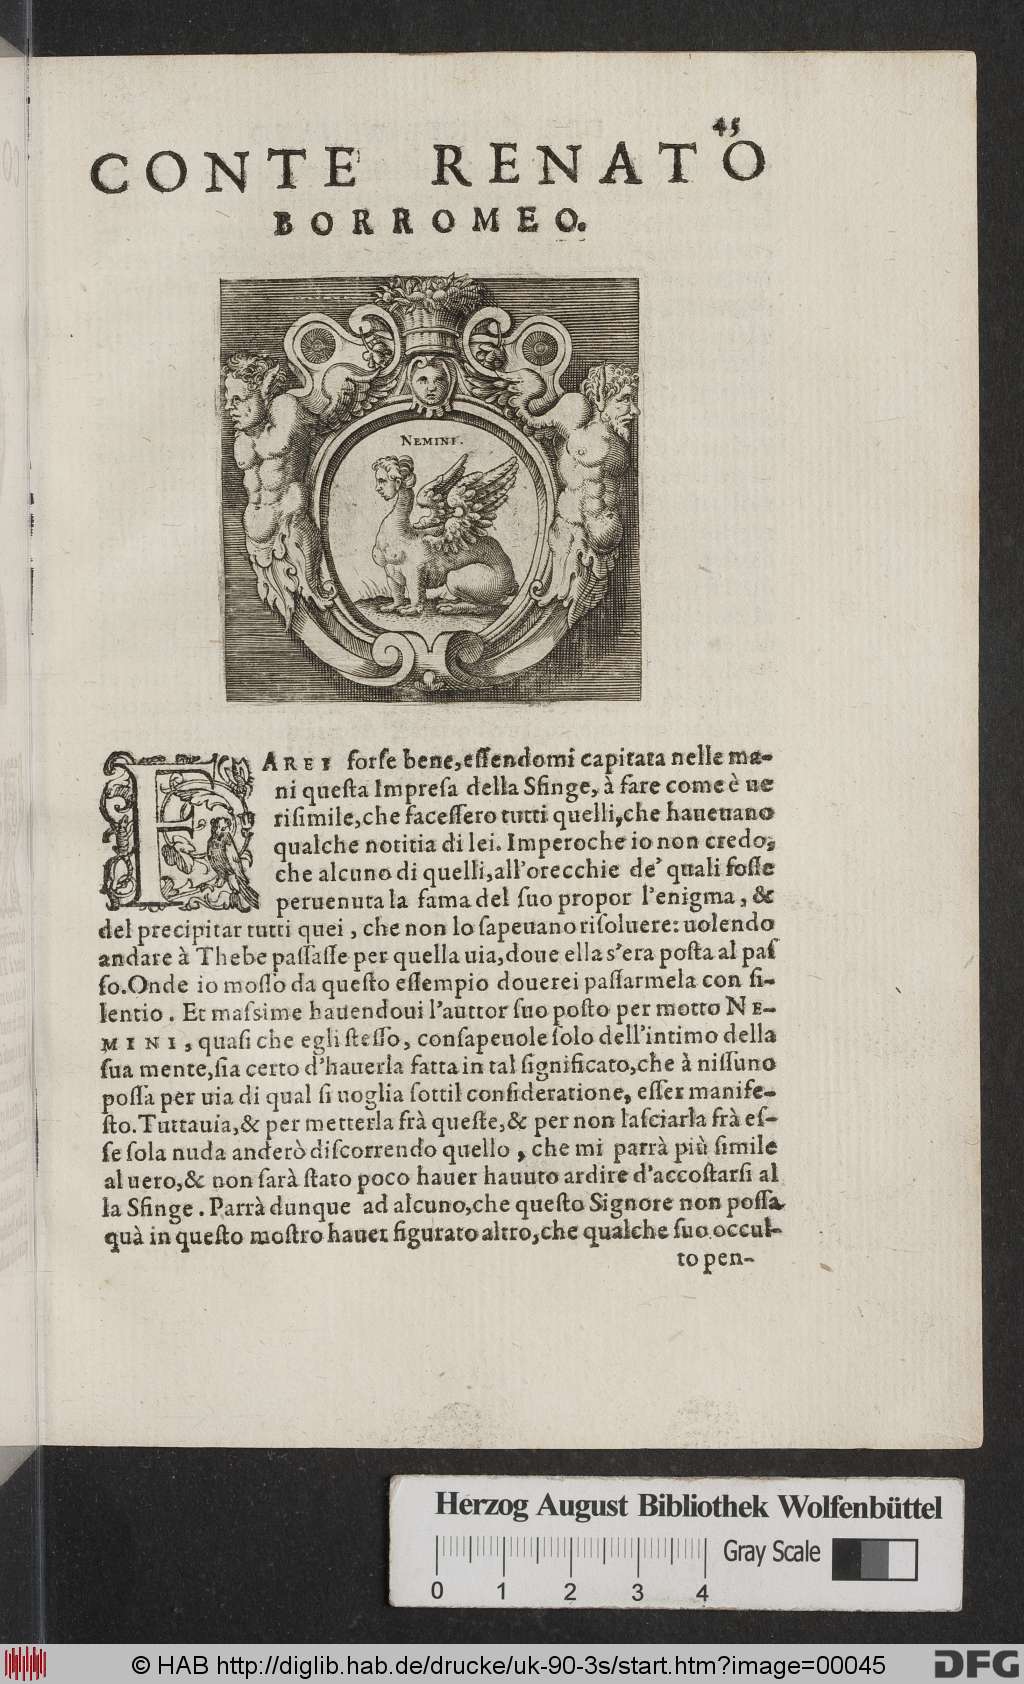 45
CONTE RENATO
BORROMEO.
NEMINI.
FAREI forse bene, eſſendomi capitata nelle ma-
ni queſta Impreſa della Sfinge, à fare come è ue
riſimile, che faceſſero tutti quelli, che haueuano
qualche notitia di lei. Imperoche io non credo,
che alcuno di quelli, all'orecchie de' quali foſſe
peruenuta la fama del ſuo propor l'enigma, &
del precipitar tutti quei, che non lo ſapeuano riſoluere: uolendo
andare à Thebe paſſaſſe per quella uia, doue ella s'era poſta al paſ
ſo. Onde io moſſo da queſto eſſempio douerei paſſarmela con ſi-
lentio. Et maſsime hauendoui l'auttor ſuo poſto per motto NE-
MINI, quaſi che egli ſteſſo, conſapeuole ſolo dell'intimo della
ſua mente, ſia certo d'hauerla fatta in tal ſignificato, che à niſſuno
poſſa per uia di qual ſi uoglia ſottil conſideratione, eſſer manife-
ſto. Tuttauia, & per metterla frà queſte, & per non laſciarla frà eſ-
ſe ſola nuda anderò diſcorrendo quello, che mi parrà più ſimile
al uero, & non ſarà ſtato poco hauer hauuto ardire d'accoſtarſi al
la Sfinge. Parrà dunque ad alcuno, che queſto Signore non poſſa
quà in queſto moſtro hauer figurato altro, che qualche ſuo occul-
to pen-
Herzog August Bibliothek Wolfenbüttel
Gray Scale
0 1 2 3 4
© HAB http://diglib.hab.de/drucke/uk-90-3s/start.htm?image=00045
DFG